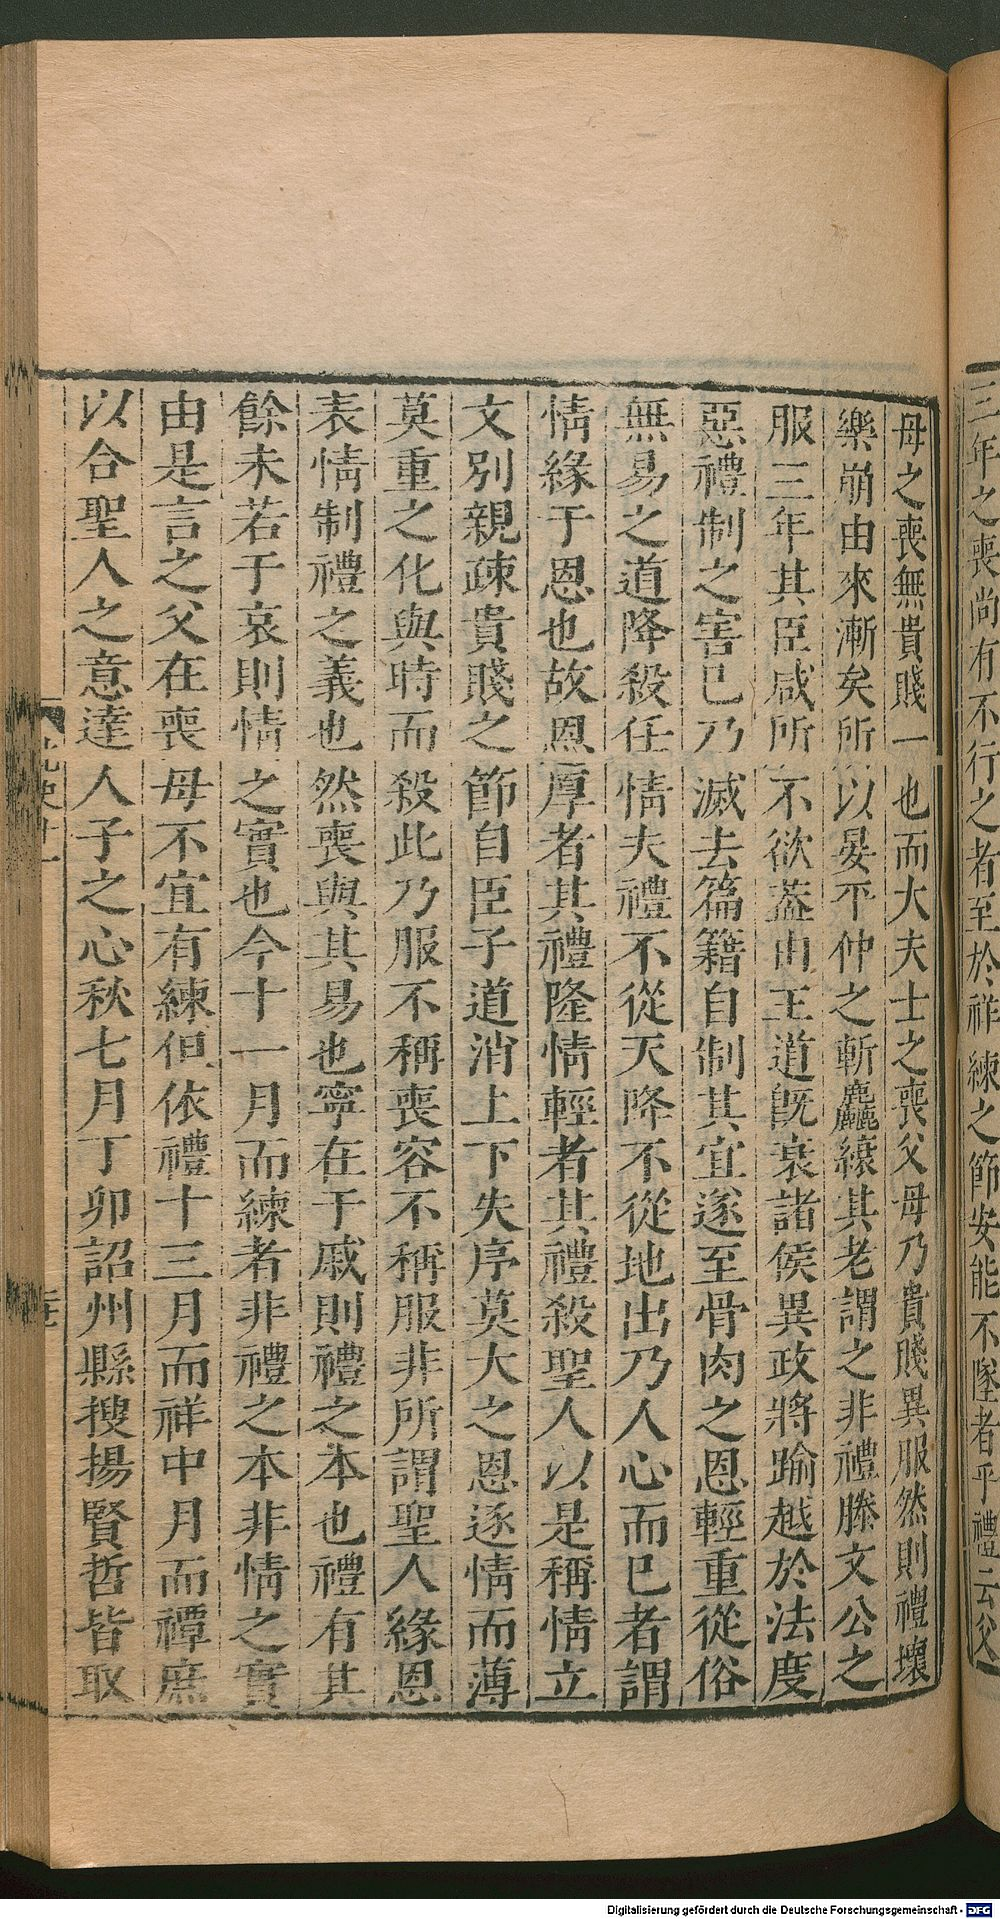 三年之喪尚有不行之者至於祥練之節安能不墜者乎禮云父
母之喪無貴賤一也而大夫士之喪父母乃貴賤異服然則禮壞
樂崩由來漸矣所以晏平仲之斬麤縗其老謂之非禮滕文公之
服三年其臣咸所不欲葢由王道旣衰諸侯異政將踰越於法度
惡禮制之害已乃滅去篇籍自制其宜遂至骨肉之恩輕重從俗
無易之道降殺任情夫禮不從天降不從地出乃人心而巳者謂
情緣于恩也故恩厚者其禮隆情輕者其禮殺聖人以是稱情立
文別親疎貴賤之節自臣子道消上下失序莫大之恩逐情而薄
莫重之化與時而殺此乃服不稱喪容不稱服非所謂聖人緣恩
表情制禮之義也然喪與其易也寧在于戚則禮之本也禮有其
餘未若于哀則情之實也今十一月而練者非禮之本非情之實
由是言之父在喪母不宜有練但依禮十三月而祥中月而禫庶
以合聖人之意達人子之心秋七月丁卯詔州縣搜揚賢哲皆取
Digitalisierung gefördert durch die Deutsche Forschungsgemeinschaft - DFG